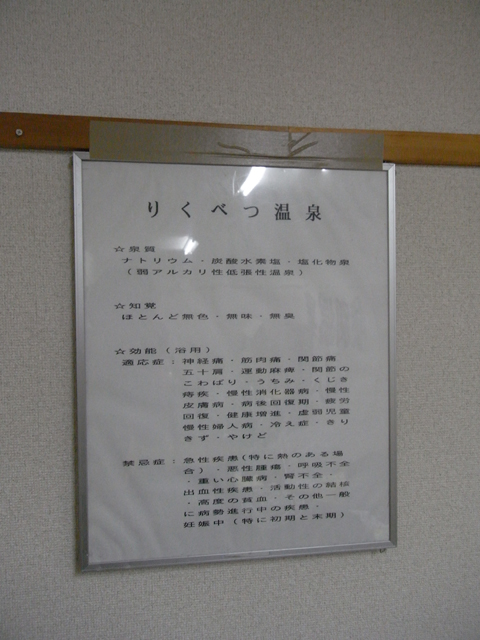 りくべつ温泉
☆泉質
ナトリウム・炭酸水素塩・塩化物泉
（弱アルカリ性低張性温泉）
☆知覚
ほとんど無色・無味・無臭
☆効能（浴用）
適応症：神経痛・筋肉痛・関節痛
五十肩・運動麻痺・関節の
こわばり・うちみ・くじき
痔疾・慢性消化器病・慢性
皮膚病・病後回復期・疲労
回復・健康増進・虚弱児童
慢性婦人病・冷え症・きり
きず・やけど
禁忌症：急性疾患（特に熱のある場
合）・悪性腫瘍・呼吸不全
・重い心臓病・腎不全・
出血性疾患・活動性の結核
・高度の貧血・その他一般
に病勢進行中の疾患・
妊娠中（特に初期と末期）